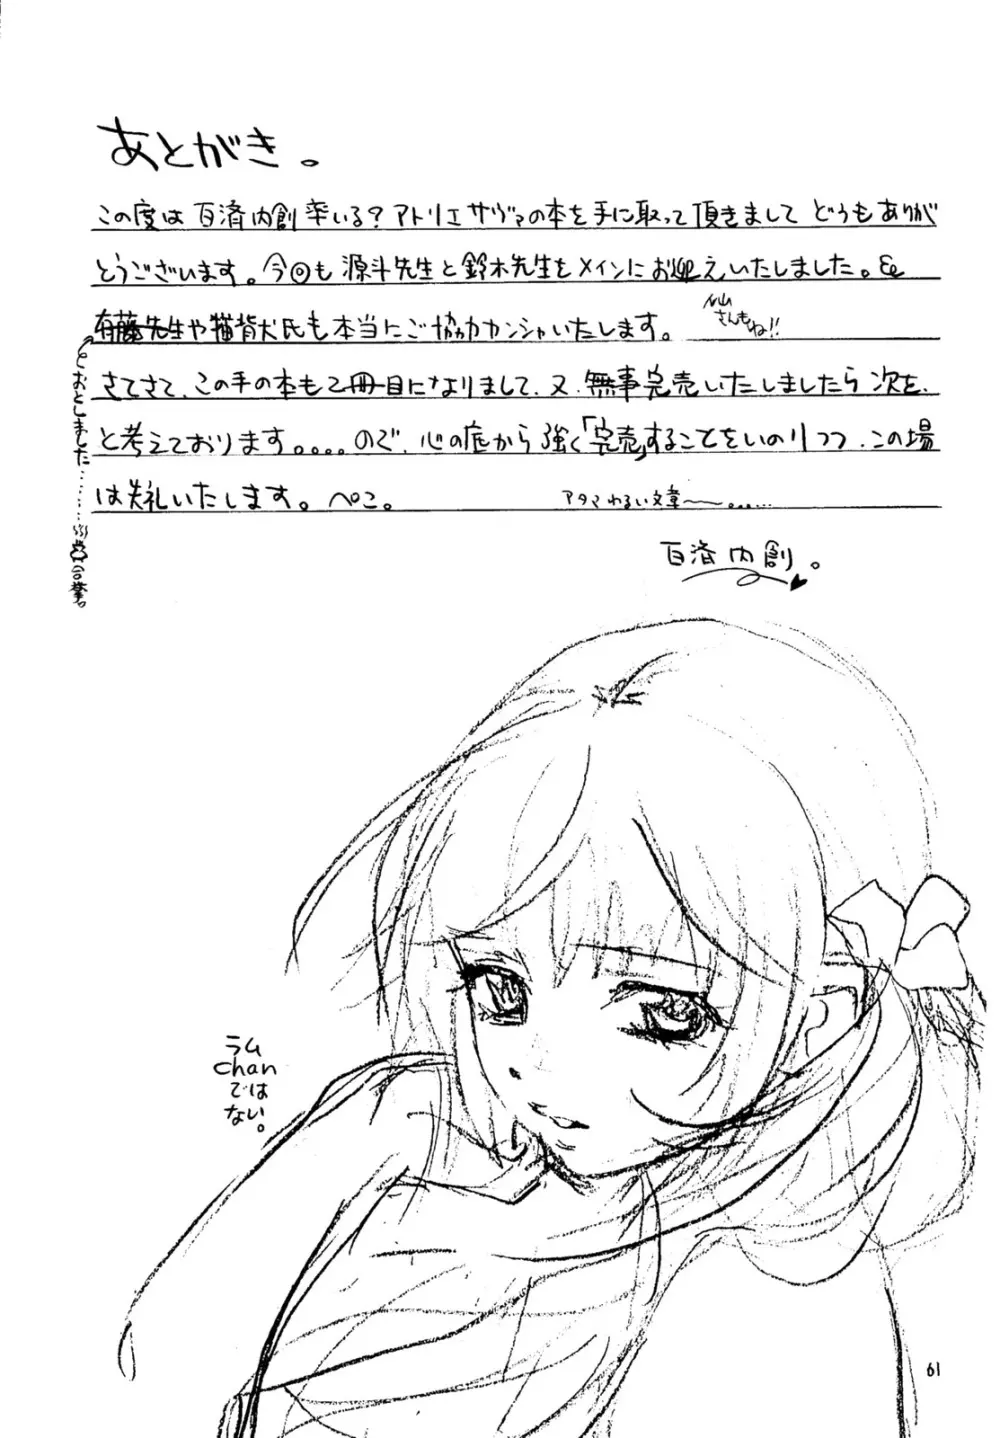 あとがき。
この度は百済内創率いる?アトリエサヴァの本を手に取って頂きまして どうもありが
とうございます。今回も 源斗先生と鈴木先生をメインにお迎えいたしました。&
有藤先生や猫背犬氏も本当にご協力カンシャいたします。
さんもね!!
さてさて、この手の本も2冊目になりまして、又、無事完売いたしましたら次を、
と考えております。。。。ので、心の底から強く「完売」することをいのりつつ、この場
は失礼いたします。ぺこ。
アタマわるい文章〜〜。……
とおとしました……
百済内創。
ラム
chan
では
ない。
61